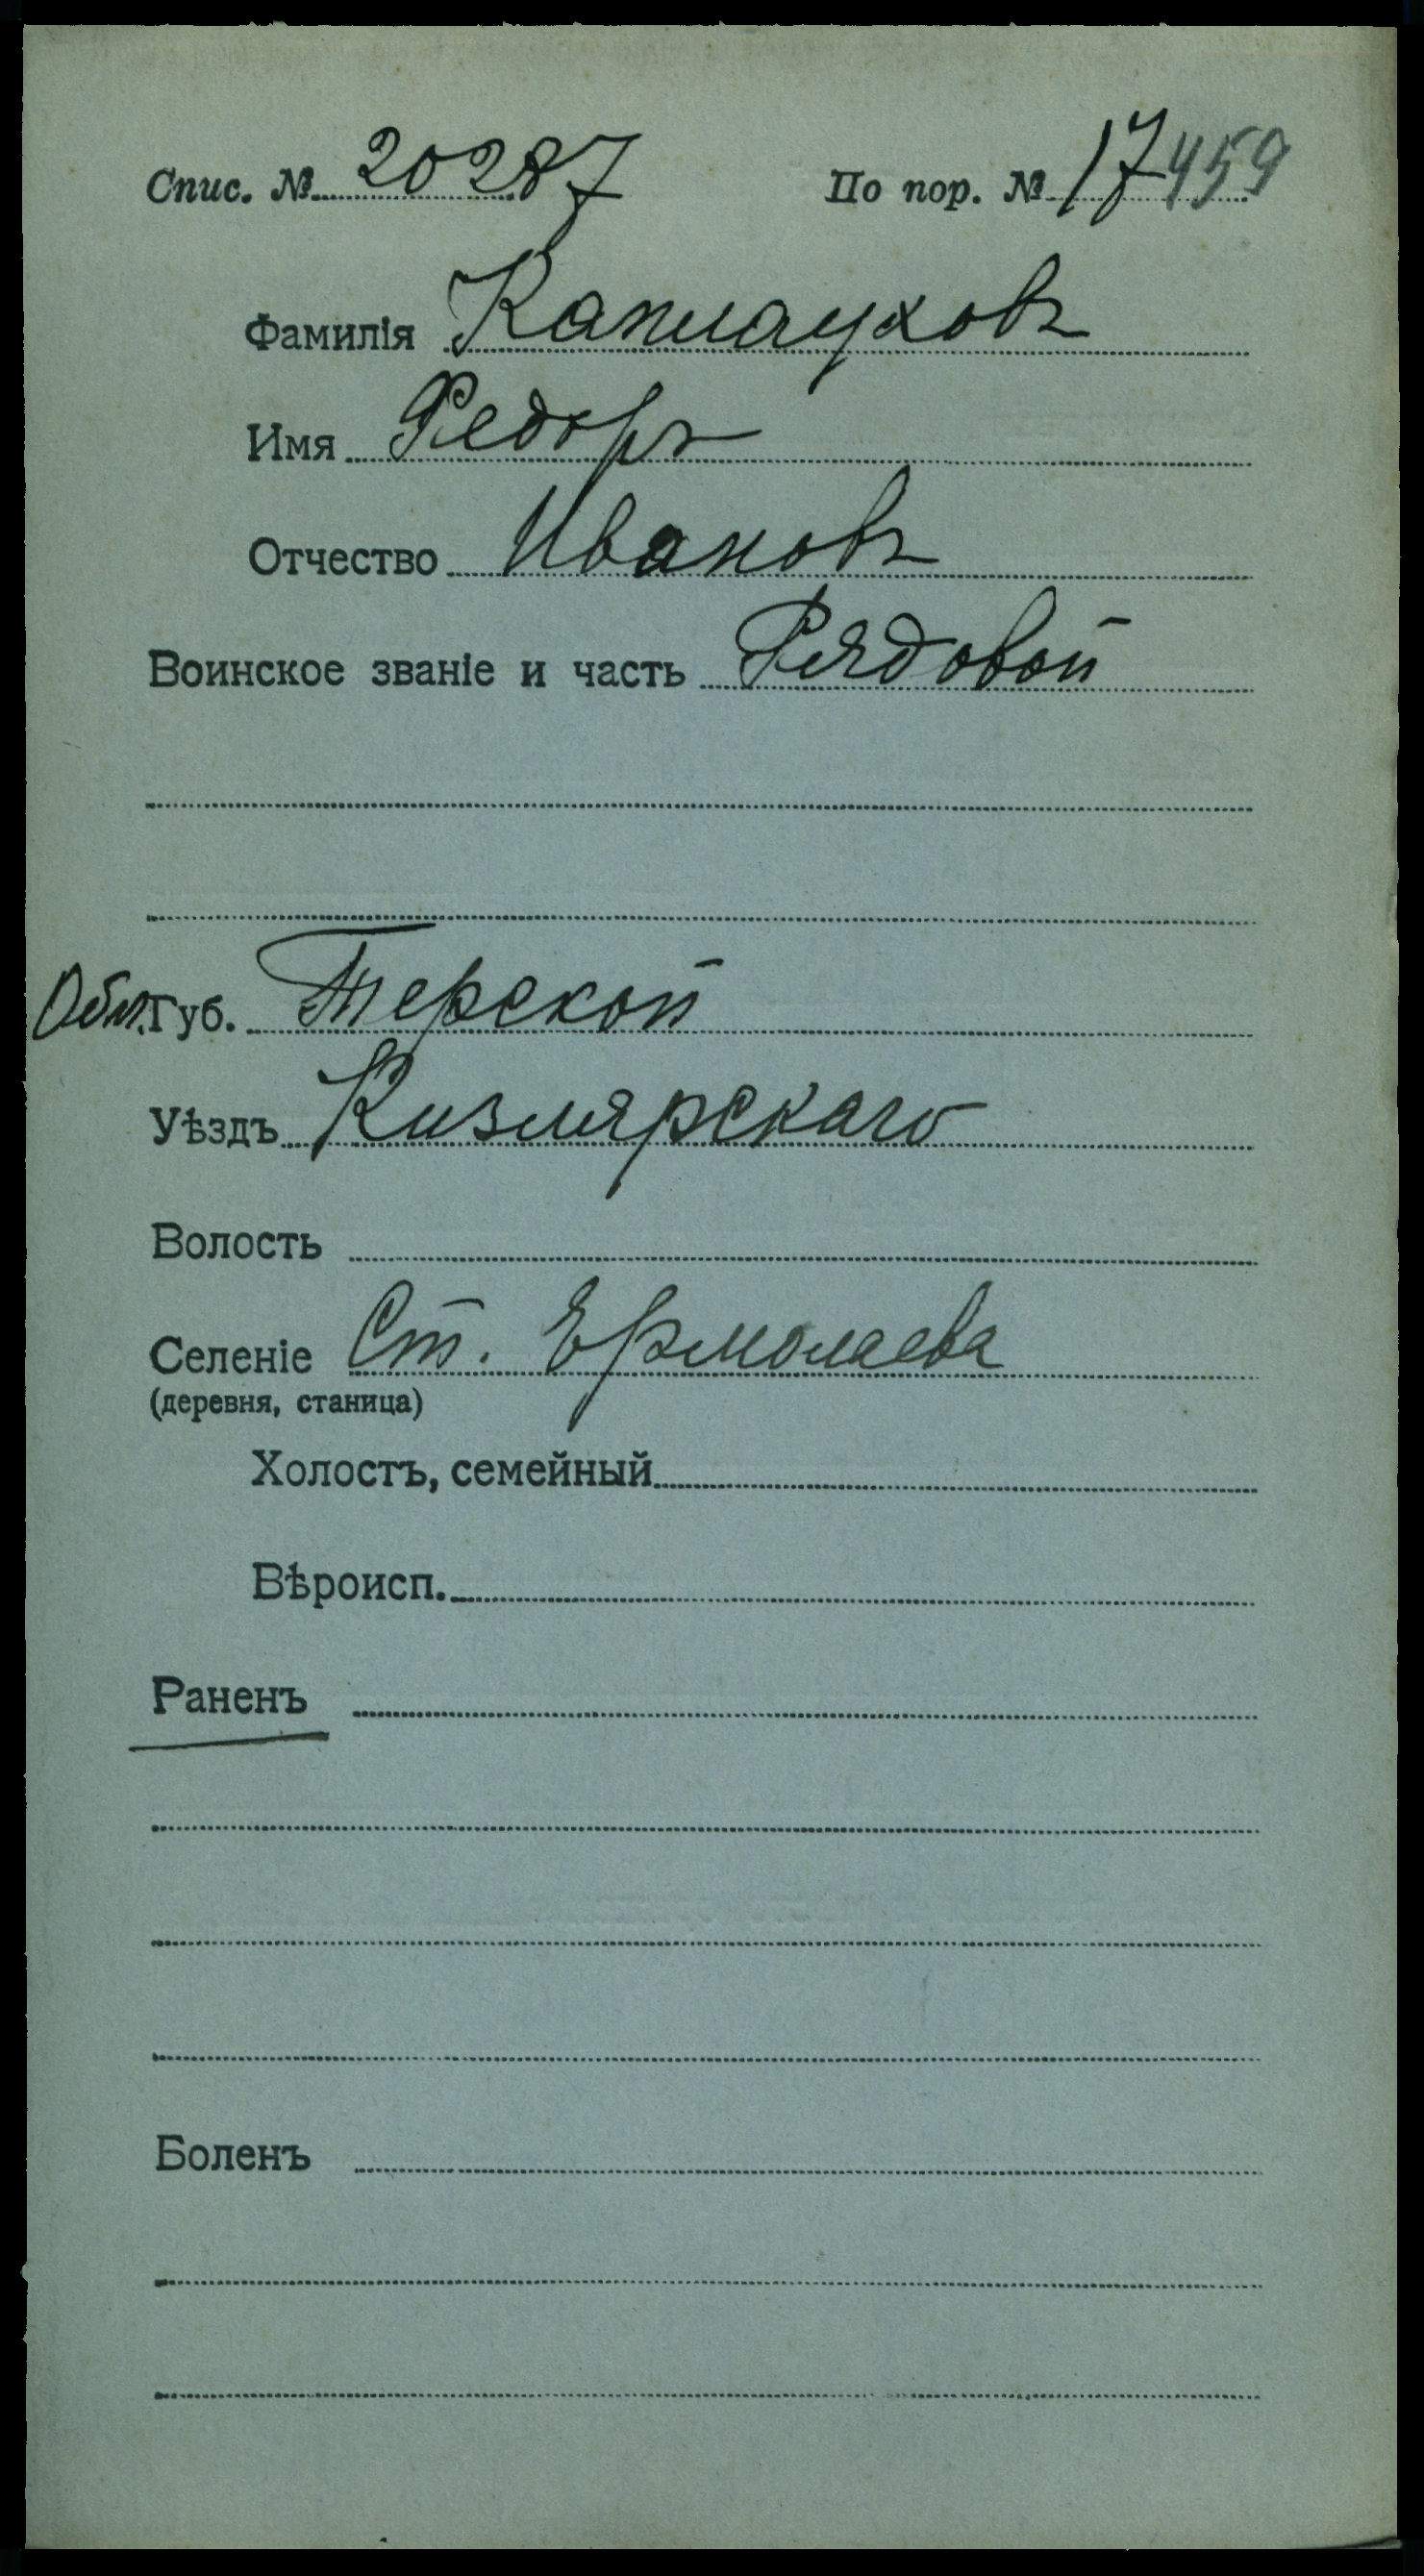 Спис. № 20287 По пор. № 17459
Фамилія Каплауховъ
Имя Федоръ
Отчество Ивановъ
Воинское званіе и часть Рядовой
Обл. Губ. Терской
Уѣздъ Кизлярскаго
Волость
Селеніе Ст. Ермолаева
(деревня, станица)
Холостъ, семейный
Вѣроисп.
Раненъ
Боленъ